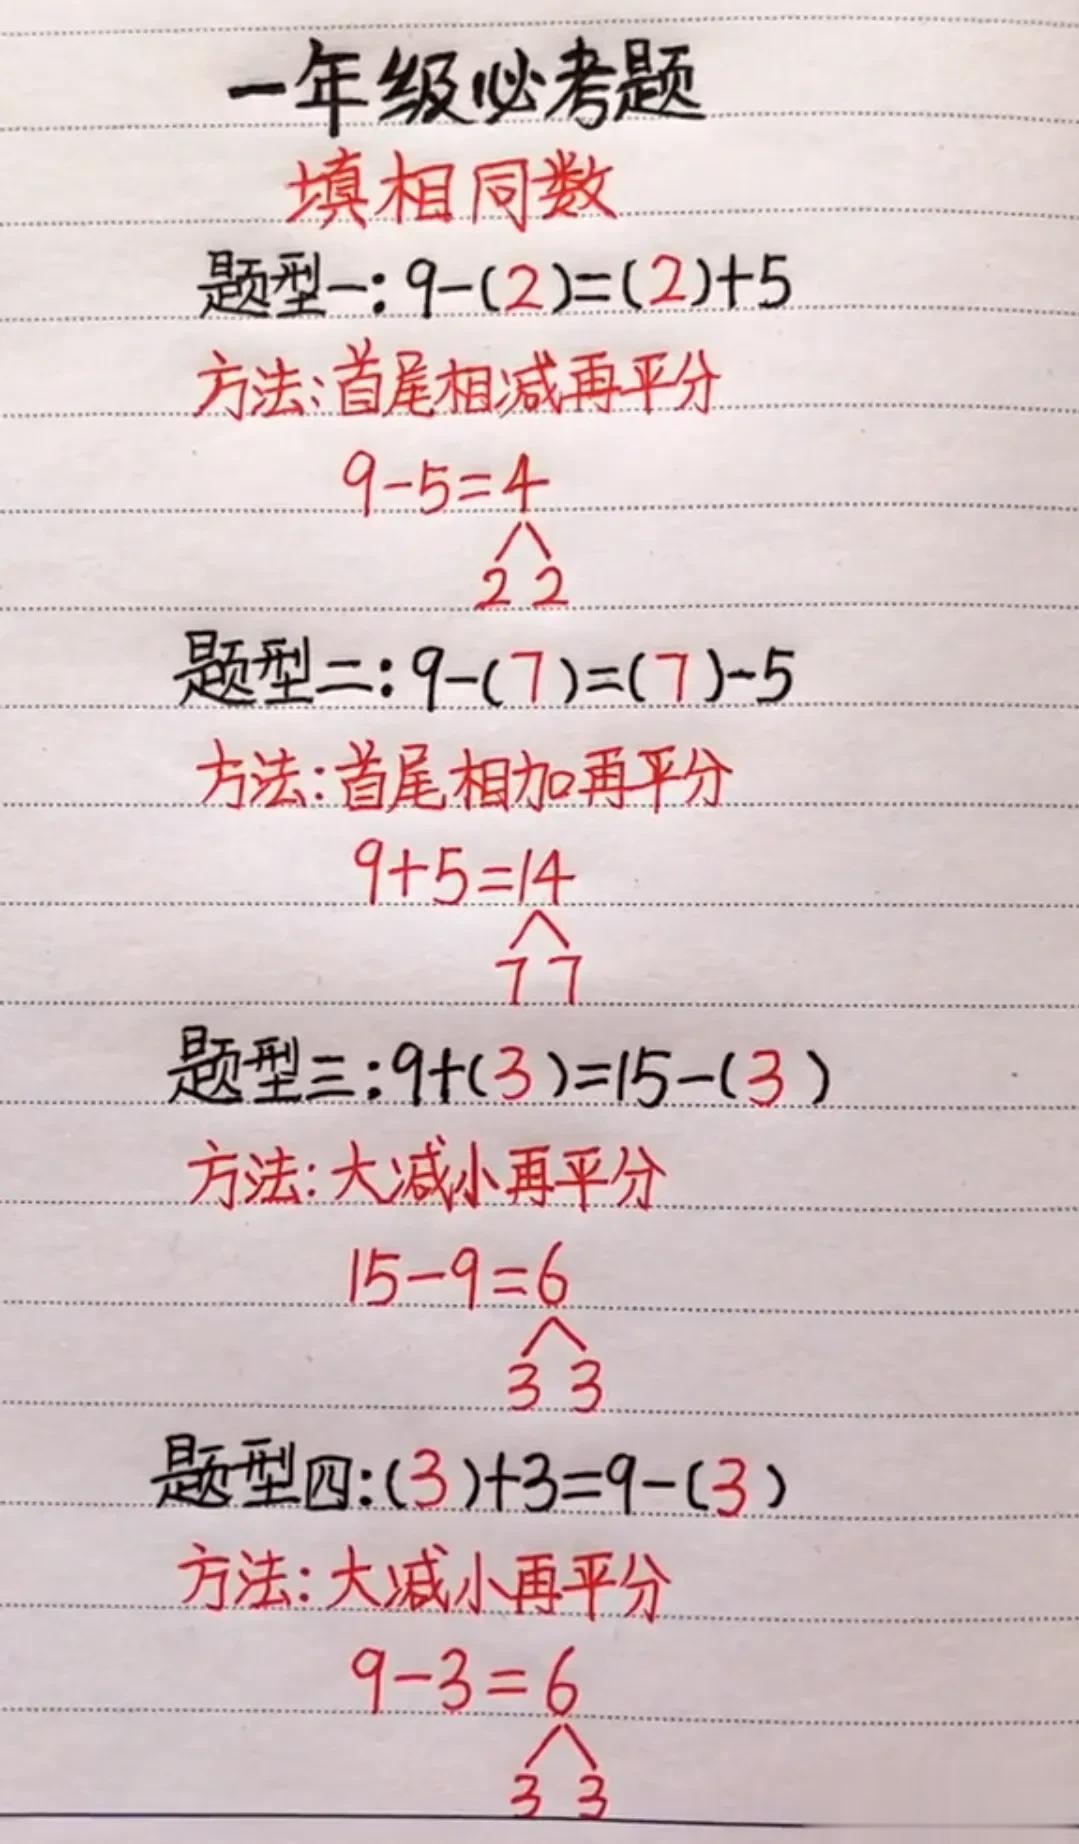 一年级必考题
填相同数
题型一:9-(2)=(2)+5
方法:首尾相减再平分
9-5=4
2 2
题型二:9-(7)=(7)-5
方法:首尾相加再平分
9+5=14
7 7
题型三:9+(3)=15-(3)
方法:大减小再平分
15-9=6
3 3
题型四:(3)+3=9-(3)
方法:大减小再平分
9-3=6
3 3